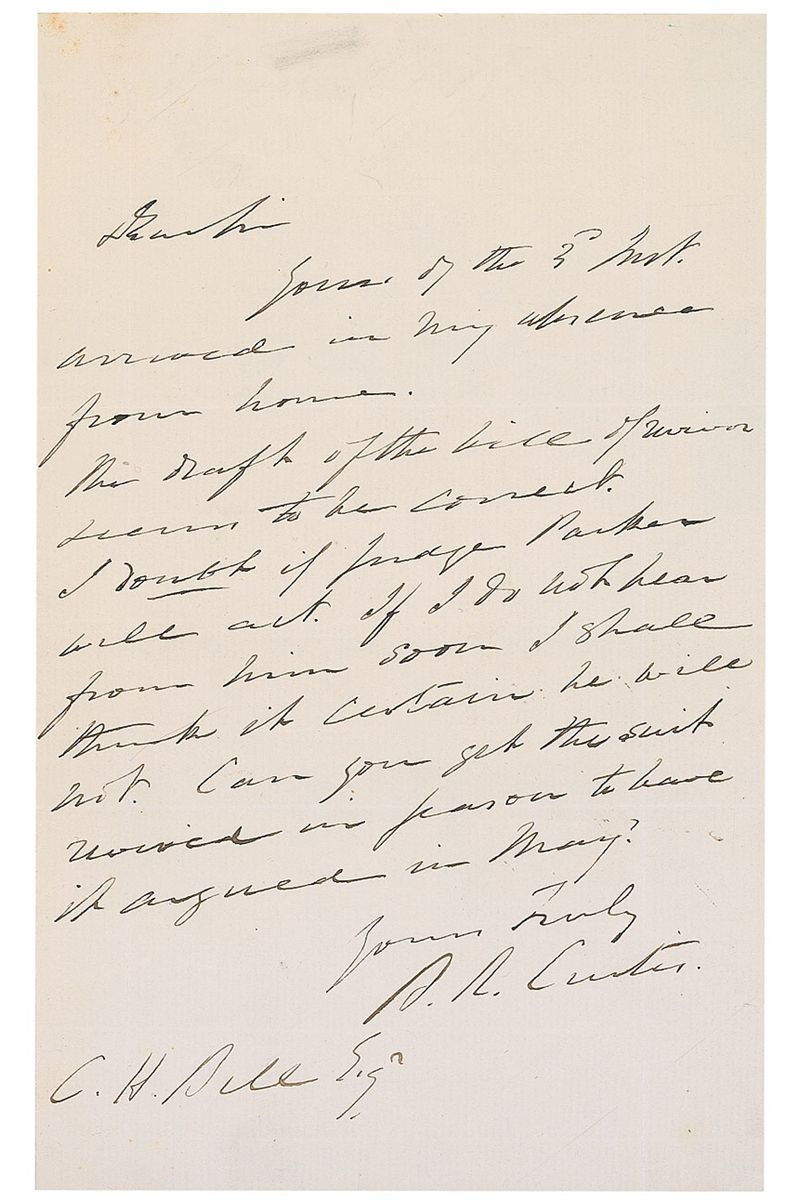 Dear Sir
Yours of the 3d Inst.
arrived in my absence
from home.
The draft of the bill of revivor
seems to be correct.
I doubt if Judge Parker
will act. If I do not hear
from him soon I shall
think it certain he will
not. Can you get the suit
revived in season to have
it argued in May?
Yours Truly
B. R. Curtis.
C. H. Bell Esqr